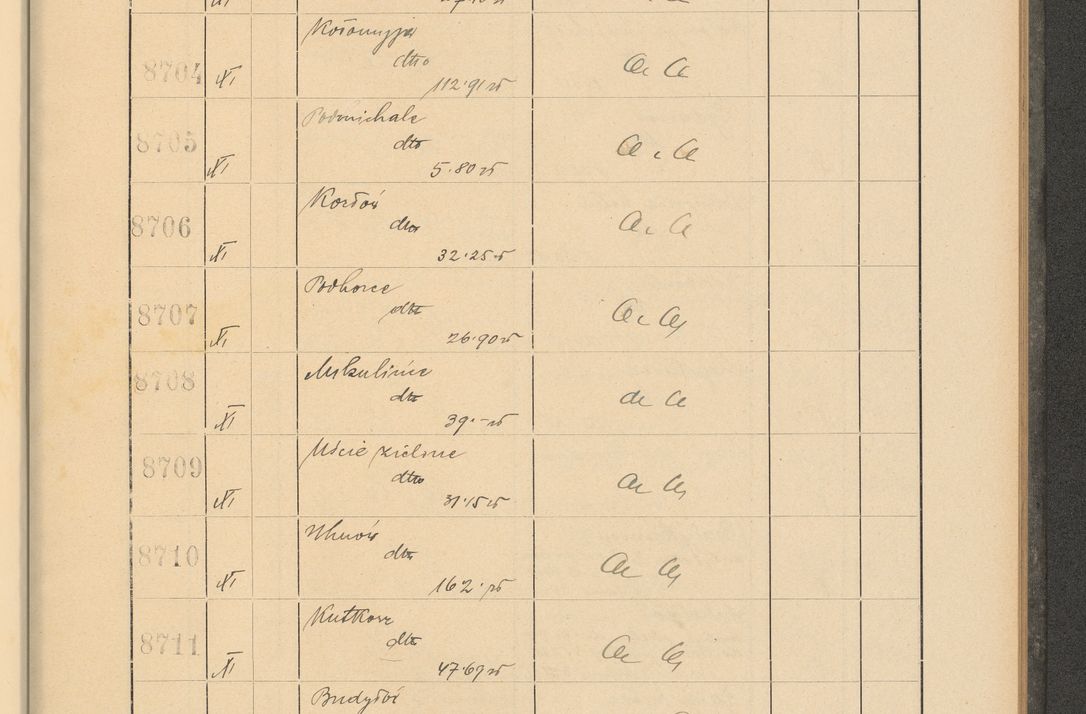 8704 XI Kołomyja
dto
112·91 zł
a a
8705 XI Podmichale
dto
5·80 zł
a a
8706 XI Kozłów
dto
32·25 zł
a a
8707 XI Podhorce
dto
26·90 zł
a a
8708 XI Mikulińce
dto
39·- zł
a a
8709 XI Uście zielone
dto
31·15 zł
a a
8710 XI Uhnów
dto
162· zł
a a
8711 XI Kutkorz
dto
47·69 zł
a a
Budyłów